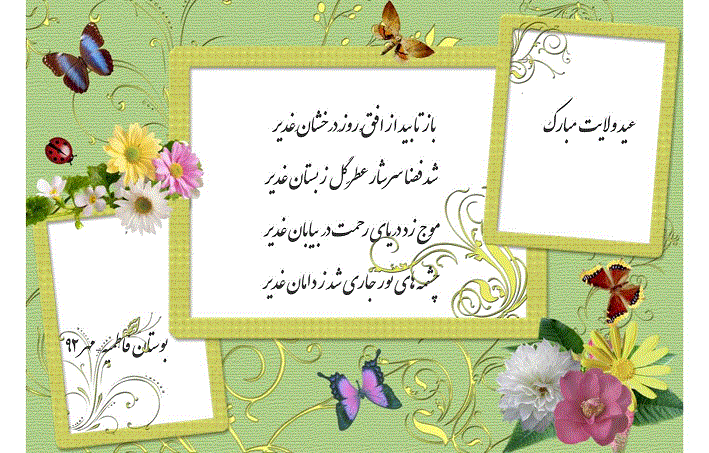 عید ولایت مبارک
باز تابید از افق روز درخشان غدیر
شد فضا سرشار عطر گل ز بستان غدیر
موج زد دریای رحمت در بیابان غدیر
چشمه های نور جاری شد ز دامان غدیر
بوستان فاطمیه مهر ۹۲